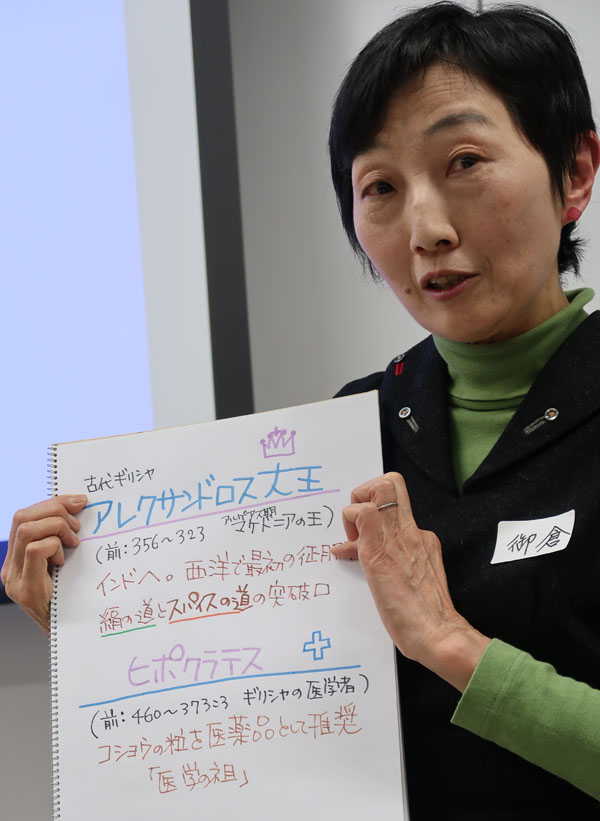 古代ギリシャ
アレクサンドロス大王
(前:356~323 マケドニアの王)
インドへ。西洋で最初の征
絹の道とスパイスの道の突破口
ヒポクラテス
(前:460~373ころ ギリシャの医学者)
コショウの粒を医薬品として推奨
「医学の祖」
御倉